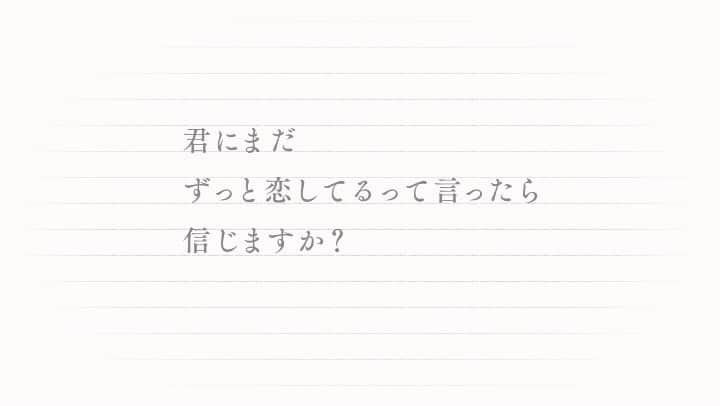 君にまだ
ずっと恋してるって言ったら
信じますか？